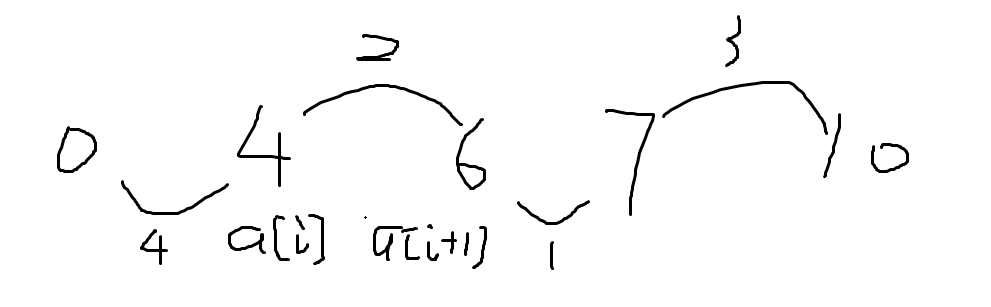 2 3
0 4 6 7 10
4 a[i] a[i+1] 1